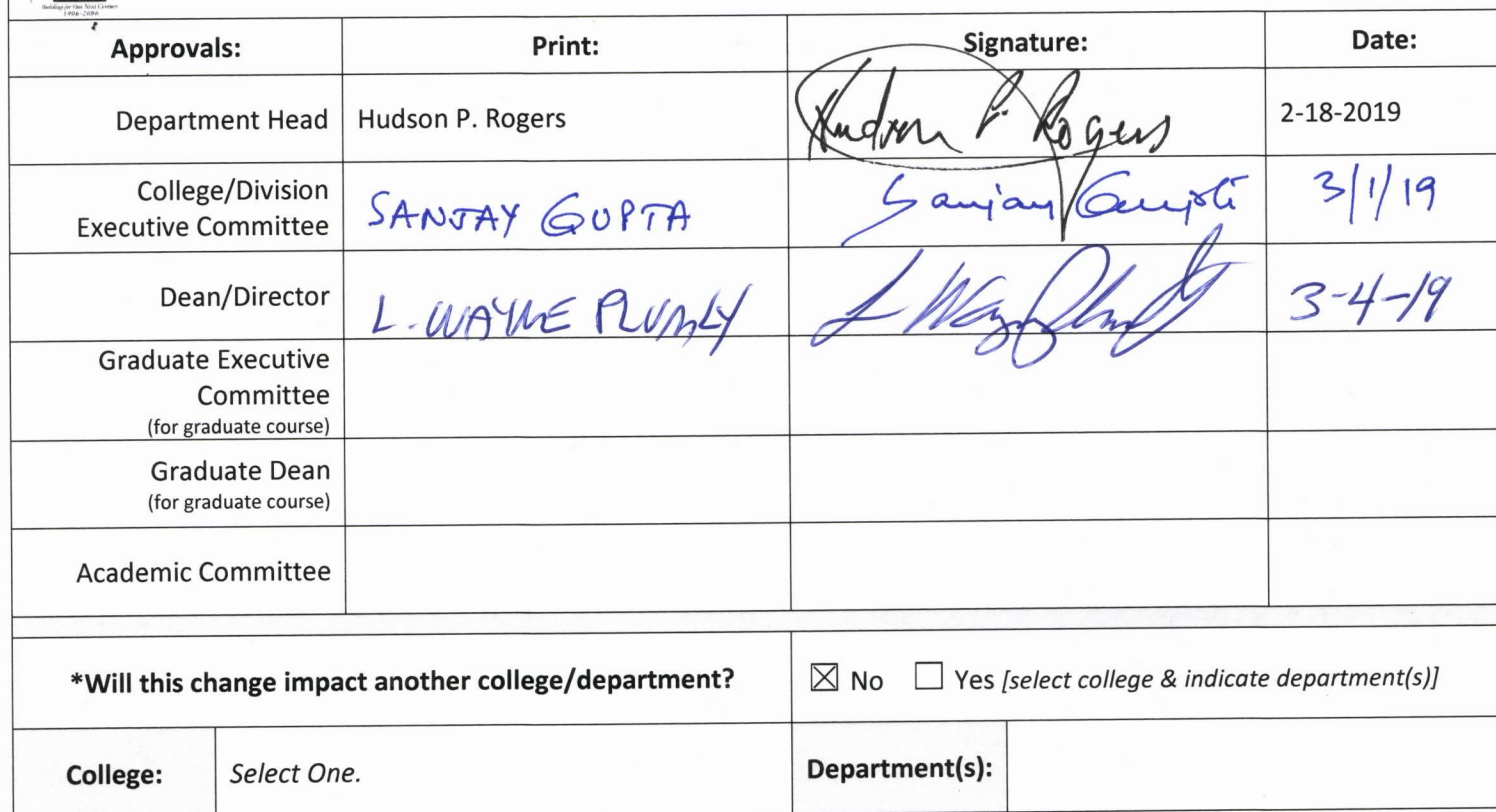 Building for Our Next Century
1906-2006
Approvals: Print: Signature: Date:
Department Head Hudson P. Rogers Hudson P. Rogers 2-18-2019
College/Division
Executive Committee SANJAY GUPTA Sanjay Gupta 3/1/19
Dean/Director L. WAYNE PLUMLY L Wayne Plumly 3-4-19
Graduate Executive
Committee
(for graduate course)
Graduate Dean
(for graduate course)
Academic Committee
*Will this change impact another college/department? ☒ No ☐ Yes [select college & indicate department(s)]
College: Select One. Department(s):